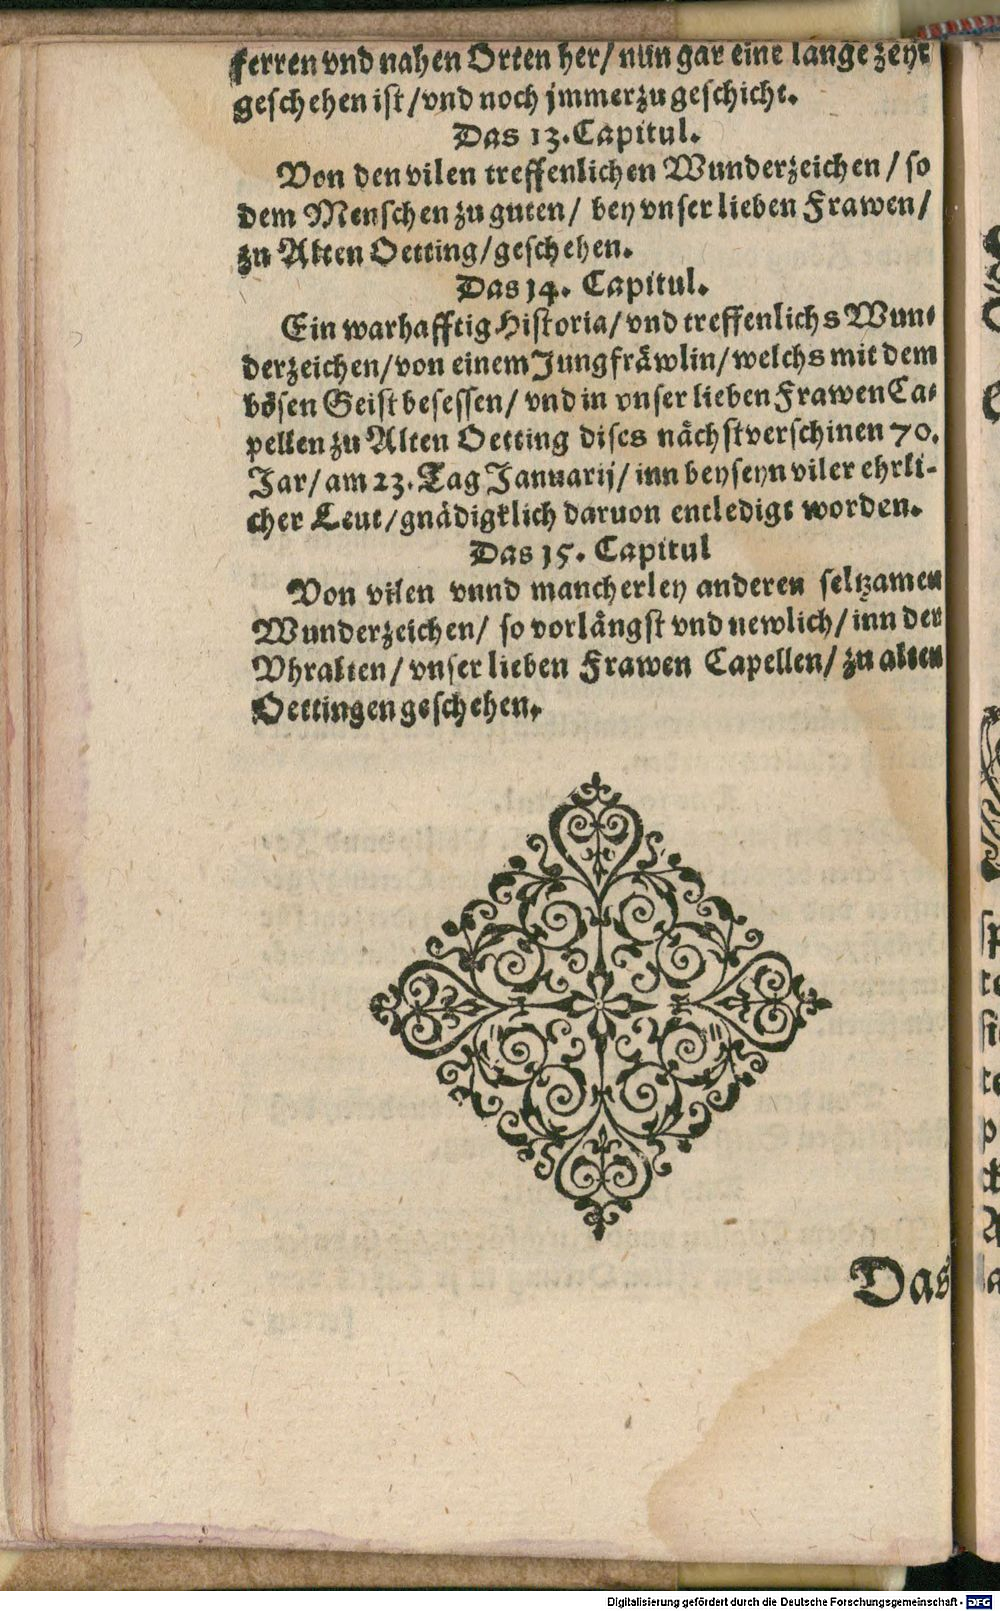 ferren vnd nahen Orten her/ nun gar eine lange zeyt
geschehen ist/ vnd noch jmmerzu geschicht.
Das 13. Capitul.
Von den vilen treffenlichen Wunderzeichen/ so
dem Menschen zu guten/ bey vnser lieben Frawen/
zu Alten Oetting/ geschehen.
Das 14. Capitul.
Ein warhafftig Historia/ vnd treffenlichs Wun-
derzeichen/ von einem Jungfräwlin/ welchs mit dem
bösen Geist besessen/ vnd in vnser lieben Frawen Ca-
pellen zu Alten Oetting dises nächstverschinen 70.
Jar/ am 23. Tag Januarij/ inn beyseyn viler ehrli-
cher Leut/ gnädigklich daruon entledigt worden.
Das 15. Capitul
Von vilen vnnd mancherley anderen seltzamen
Wunderzeichen/ so vorlängst vnd newlich/ inn der
Vhralten/ vnser lieben Frawen Capellen/ zu alten
Oettingen geschehen.
Das
Digitalisierung gefördert durch die Deutsche Forschungsgemeinschaft - DFG